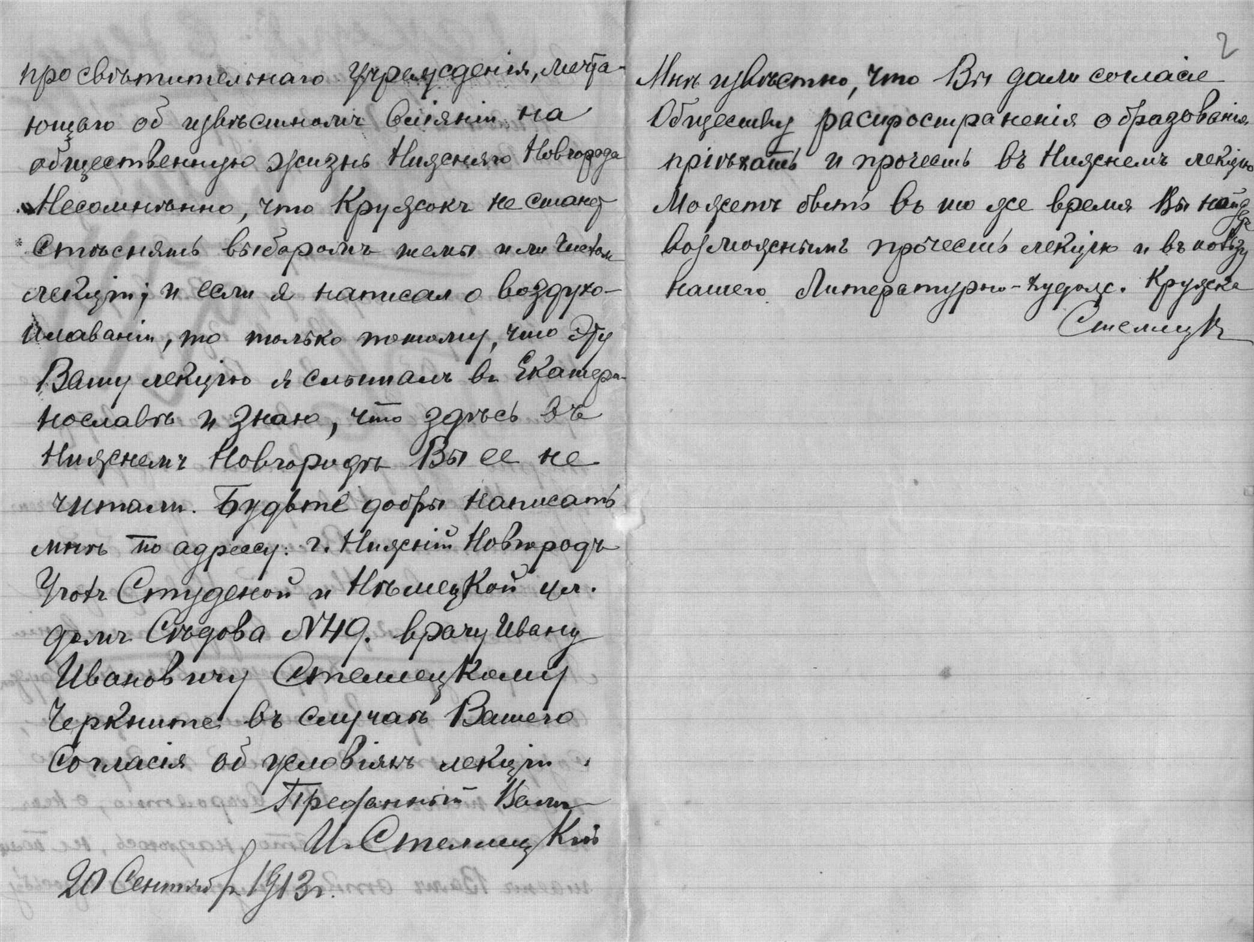 просвѣтительнаго учрежденія, мечта-
ющаго об извѣстномъ вліяніи на
общественную жизнь Нижняго Новгорода
Несомнѣнно, что Кружокъ не станет
стѣснять выборомъ темы или
лекціи; и если я написал о воздухо-
плаваніи, то только потому, что эту
Вашу лекцію я слышалъ въ Екатери-
нославѣ и знаю, что здѣсь въ
Нижнемъ Новгородѣ Вы ее не
читали. Будьте добры написать
мнѣ по адресу: г. Нижній Новгородъ
Угол Студеной и Нѣмецкой ул.
домъ Сѣдова №49. врачу Ивану
Ивановичу Стеллецкому
Черкните въ случаѣ Вашего
согласія об условіяхъ лекціи.
Преданный Вамъ
И. Стеллецкій
20 Сентября 1913 г.
2
Мнѣ извѣстно, что Вы дали согласіе
Обществу распространенія образованія
пріѣхать и прочесть въ Нижнемъ лекцію
Можетъ быть въ то же время Вы найде
возможнымъ прочесть лекцію и въ пользу
нашего Литературно-худож. Кружка
Стеллецк